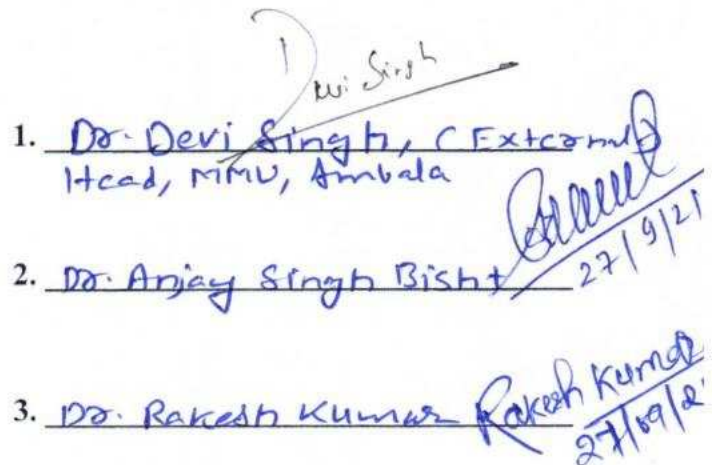 Devi Singh
1. Dr. Devi Singh, (External)
Head, MMU, Ambala
27/9/21
2. Dr. Anjay Singh Bisht
3. Dr. Rakesh Kumar Rakesh Kumar
27/09/2